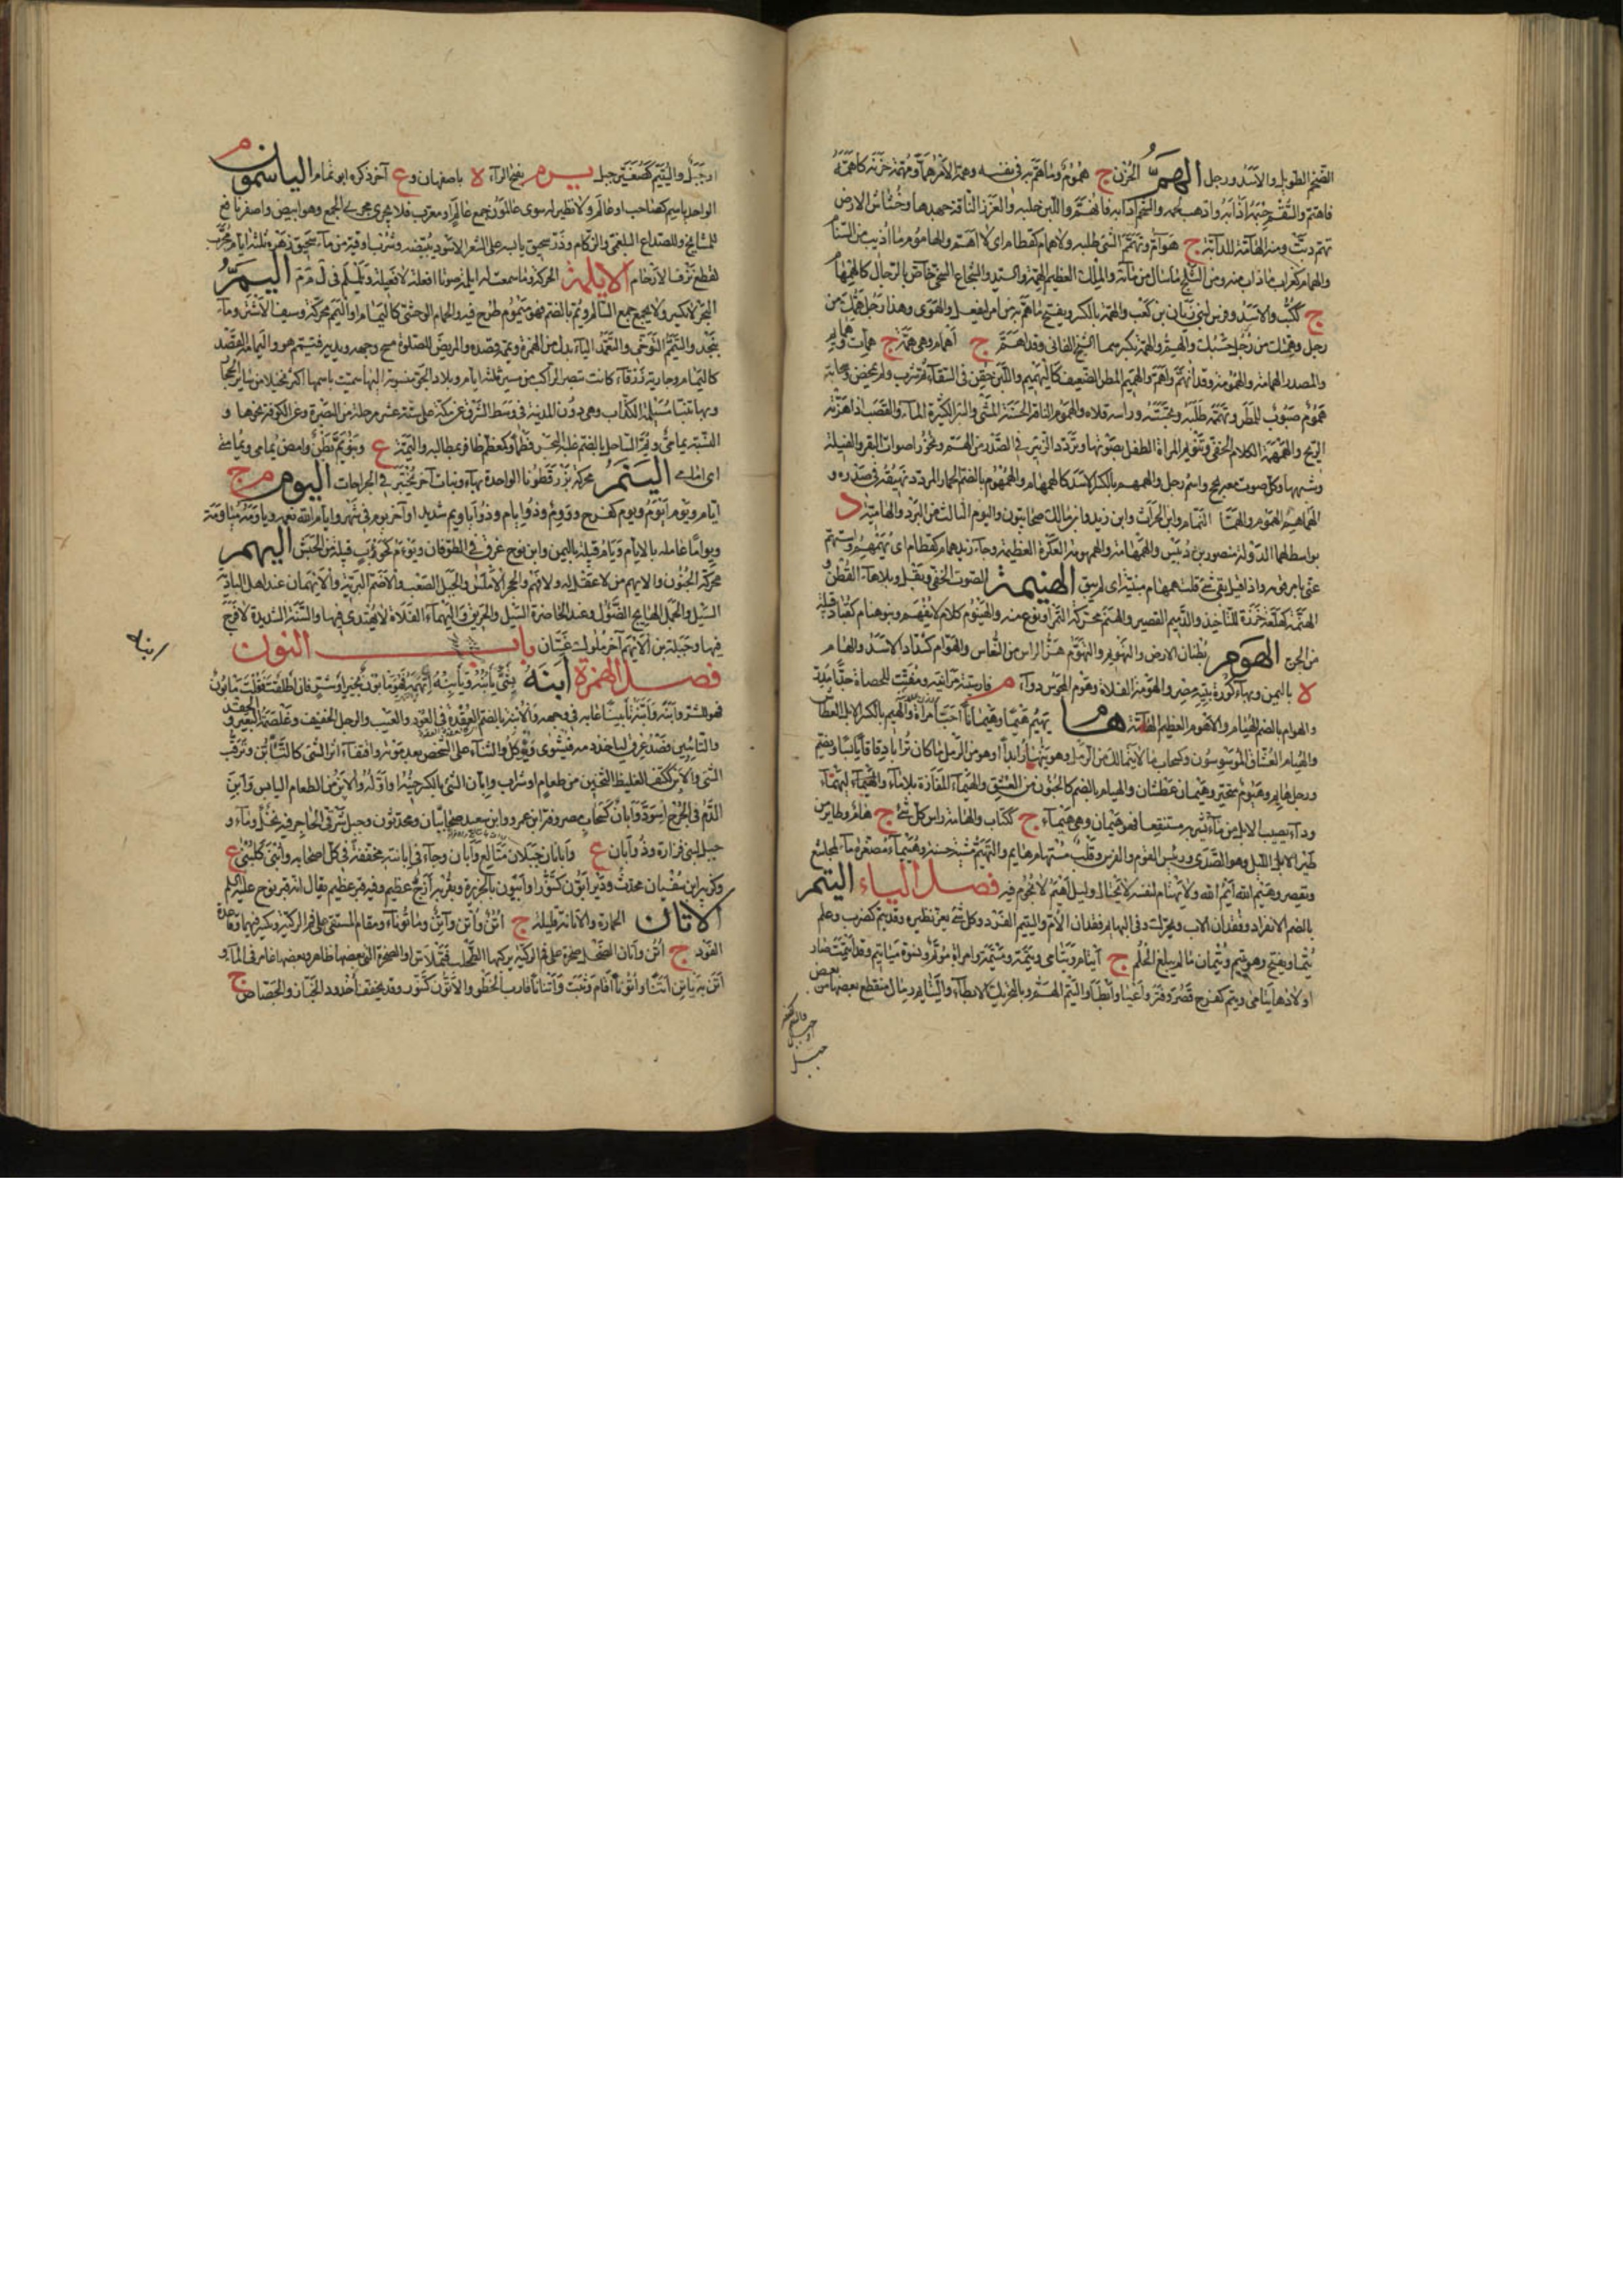 الضخم الطويل والاسد ورجل الهم الحزن ج هموم وما هم به في نفسه وهمه الامر هما ومهمة حزنه كاهمه
فاهتم والسقم جسمه اذابه واذهب لحمه والشحم اذابه فانهم واللبن حلبه والغزر الناقة جهدها وخشاش الارض
تهم دبت ومنه الهامة للدابة ج هوام وتهمم الشئ طلبه ولا همام كقطام اى لا اهم والهاموم ما اذيب من السنام
والهمام كغراب ما ذاب منه ومن الثلج ما سال من مائه والملك العظيم الهمة والسيد الشجاع السخي خاص بالرجال كالهمهام
ج ككتاب والاسد وفرس لبني زبان بن كعب والهمة بالكسر ويفتح ما هم به من امر ليفعل والهوى وهذا رجل همك من
رجل وهمتك من رجل حسبك والهم والهمة بكسرهما الشيخ الفاني وقد اهم ج اهمام وهي همة ج همات وهمايم
والمصدر الهمامة والهمومة وقد انهم واهم والهميم المطر الضعيف كالتهميم واللبن حقن في السقاء ثم شرب ولم يمخض وسحابة
هموم صبوب للمطر وتهممه طلبه وتجسسه وراسه فلاه والهموم الناقة الحسنة المشى والبئر الكثيرة الماء والقصب اذا هزته
الريح والهمهمة الكلام الخفي وتنويم المراة الطفل بصوتها وتردد الزئير في الصدر من الهم ونحو اصوات البقر والفيلة
وشبهها وكل صوت معه بحح واسم رجل والهمهيم بالكسر الاسد كالهمهام والهمهوم بالضم الحمار المردد نهيقه في صدره و
الهماهم الهموم والهمام النمام وابن الحارث وابن زيد وابن مالك صحابيون واليوم الثالث من البرد والهامية د
بواسط لهمام الدولة منصور بن دبيس والهمهامة والهمهومة العكرة العظيمة وجاء زيد همام كقطام اى يهمهم ويستهم
عنى بامر قومه واذا قيل بقى شئ قلت همهام مبنية اى لم يبق الهنيمة الصوت الخفي وبقل وبلا هاء القطن
من الجن الهوم بطنان الارض والتهويم والتهوم هز الراس من النعاس والهوام كشداد الاسد والهام
ة باليمن
والهوام بالضم الهيام والاهوم العظيم الهامة هام يهيم هيما وهيمانا احب امراة والهيم بالكسر الابل العطاش
والهيام العشاق الموسوسون وكسحاب ما لا يتمالك من الرمل فهو ينهار ابدا او هو من الرمل ما كان ترابا دقاقا يابسا ويضم
ورجل هايم وهيوم متحير وهيمان عطشان والهيام بالضم كالجنون من العشق والهيماء المفازة بلا ماء
وداء يصيب الابل من ماء تشربه مستنقعا فهو هيمان وهي هيماء ج ككتاب والهامة راس كل شئ ج هام وطاير من
طير الليل وهو الصدى ورييس القوم والفرس وقلب مستهام هايم والتهيم مشية حسنة وهييماء مصغرة ماء لمجاشع
ويقصر وهيم الله ايم الله ولا يهتام لنفسه لا يحتال وليل اهيم لا نجوم فيه فصل الياء اليتم
بالضم الانفراد وفقدان الاب ويحرك وفي البهايم فقدان الام واليتيم الفرد وكل شئ يعز نظيره وقد يتم كضرب وعلم
يتما ويفتح وهو يتيم ويتمان ما لم يبلغ الحلم ج ايتام ويتامى ويتمة وميتمة وامراة موتم ونسوة مياتيم وقد ايتمت صار
اولادها يتامى ويتم كفرح قصر وفتر واعيا وابطا واليتم الهم وبالتحريك الابطاء واليتايم رمال منقطع بعضها من بعض
او جبل واليتيم كصغير جبل يرم بفتح الراء ة باصفهان وع آخر ذكره ابو تمام الياسمون م
الواحد ياسم كصاحب او عالم ولا نظير له سوى عالمون جمع عالم او معرب فلا يجرى مجرى الجمع وهو ابيض واصفر نافع
للمشايخ وللصداع البلغمي والزكام وذر سحيق يابسه على الشعر الاسود يبيضه وشرب اوقية من ماء سحيق زهره ثلثة ايام مجرب
لقطع نزف الارحام الايلمة الحركة وما سمعت له ايلمة صوتا افعلة لا فيعلة ويلملم في ل م م اليم
البحر لا يكسر ولا يجمع جمع السالم ويم بالضم فهو ميموم طرح فيه والحمام الوحشى كاليمام او اليمم محركة وسيف الاشتر وماء
بنجد والتيمم التوخى والتعمد الياء بدل من الهمزة ويممه قصده والمريض للصلوة مسح وجهه ويديه فتيمم هو واليمامة القصد
كاليمام وجارية زرقاء كانت تبصر الراكب من مسيرة ثلثة ايام وبلاد الجو منسوبة اليها سميت باسمها اكثر نخيلا من ساير الحجاز
وبها تنبا مسيلمة الكذاب وهي دون المدينة في وسط الشرق عن مكة على ستة عشر مرحلة من البصرة وعن الكوفة نحوها و
النسبة يمامي ويم الساحل بالضم غلبه البحر فطما واليمة ع وبنو يم بطن وامض يمامى ويمامتى
اى امامى الينم محركة بزر قطونا الواحدة بهاء ونبات آخر يختبر في الجراحات اليوم م ج
ايام ويوم ايوم ويوم كفرح ووم وذو ايام وذو اياويم شديد او آخر يوم في شهر وايام الله نعمه وياومه مياومة
ويواما عامله بالايام ويام قبيلة باليمن وابن نوح غرق في الطوفان ويوءم قبيلة من الحبش اليهم
محركة الجنون والايهم من لا عقل له ولا فهم والحجر الاملس والجبل الصعب والاصم البرية والايهمان عند اهل البادية
السيل والجمل الهايج الصؤول وعند الحاضرة السيل والحريق واليهماء الفلاة لا يهتدى فيها والسنة الشديدة لا فرج
فيها وجبلة بن الايهم آخر ملوك غسان باب النون
فصل الهمزة ابنه بشئ يابنه ويابنه اتهمه فهو مابون بخير او شر فان اطلقت فقلت مابون
فهو للشر وابنه وابنه تابينا عابه في وجهه والابنة بالضم العقدة في العود والعيب والرجل الخفيف وغلصمة البعير والحقد
والتابين فصد عرق ليؤخذ دمه فيشوى ويؤكل والثناء على الشخص بعد موته واقتفاء اثر الشئ كالتابن وترقب
الشئ والابن ككتف الغليظ الثخين من طعام او شراب وابان الشئ بالكسر حينه او اوله والابن من الطعام اليابس وابن
الدم في الجرح اسود وابان كسحاب مصروف ابن عمرو وابن سعيد صحابيان ومحدثون وجبل شرقي الحاجر فيه نخل وماء و
جبل لبني فزارة وذو ابان ع وابانان جبلان متالع وابان وجاء في ابانته مخففة في كل اصحابه وابنى كلبنى ع
وكزبير ابن سفيان محدث ودير ابون كتنور او ابيون بالجزيرة وبقربه ازج عظيم وفيه قبر عظيم يقال انه قبر نوح عليه السلم
الاتان الحمارة والاتانة قليلة ج آتن واتن واتن وماتوناء ومقام المستقى على فم الركية ويكسر فيهما وقاعدة
الفودج ج آتن واتان الضحل صخرة على فم الركية يركبها الطحلب فتملاس او الصخرة التي بعضها ظاهر وبعضها غامر في الماء و
اتن به ياتن اتنا واتونا اقام وثبت واتنانا قارب الخطو والاتون كتنور وقد يخفف اخدود الجيار والجصاص ج